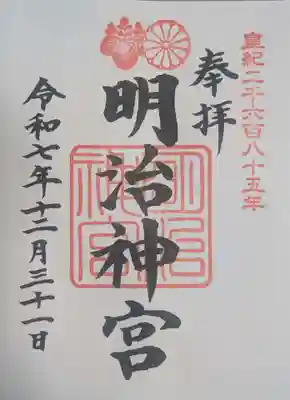 皇紀二千六百八十五年
奉拝
明治神宮
明治神宮
令和七年十二月三十一日